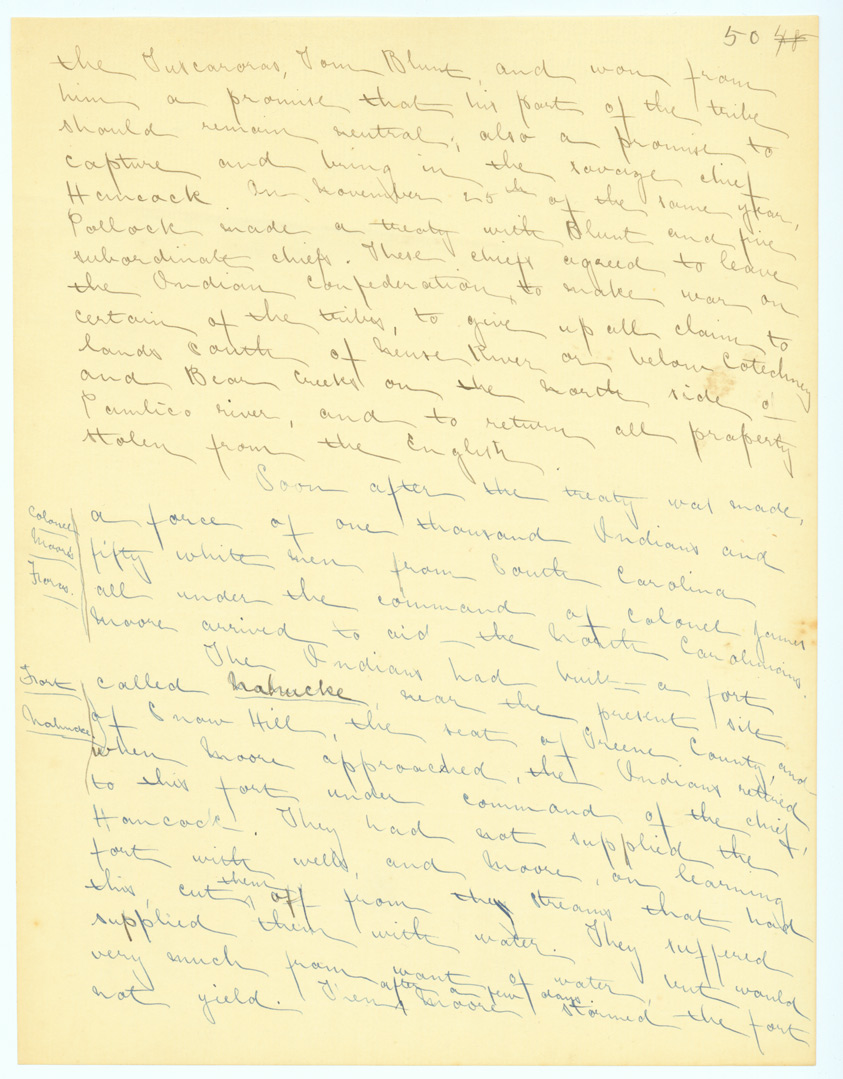 50 48
the Tuscaroras, Tom Blunt, and won from
him a promise that his part of the tribe
should remain neutral; also a promise to
capture and bring in the savage chief
Hancock. In November 25th of the same year,
Pollock made a treaty with Blunt and five
subordinate chiefs. These chiefs agreed to leave
the Indian Confederation, to make war on
certain of the tribes, to give up all claim to
lands south of Neuse River or below Cotechney
and Bear Creeks on the north side of
Pamlico river, and to return all property
stolen from the English.
Soon after the treaty was made,
Colonel Moore's Forces.
a force of one thousand Indians and
fifty white men from South Carolina
all under the command of Colonel James
Moore arrived to aid the North Carolinians.
The Indians had built a fort
Fort Nahucke.
called Nahucke, near the present site
of Snow Hill, the seat of Greene County, and
when Moore approached, the Indians retired
to this fort under command of the chief,
Hancock. They had not supplied the
fort with wells, and Moore, on learning
this, cut them off from the streams that had
supplied them with water. They suffered
very much from want of water, but would
not yield. Then after a few days Moore stormed the fort